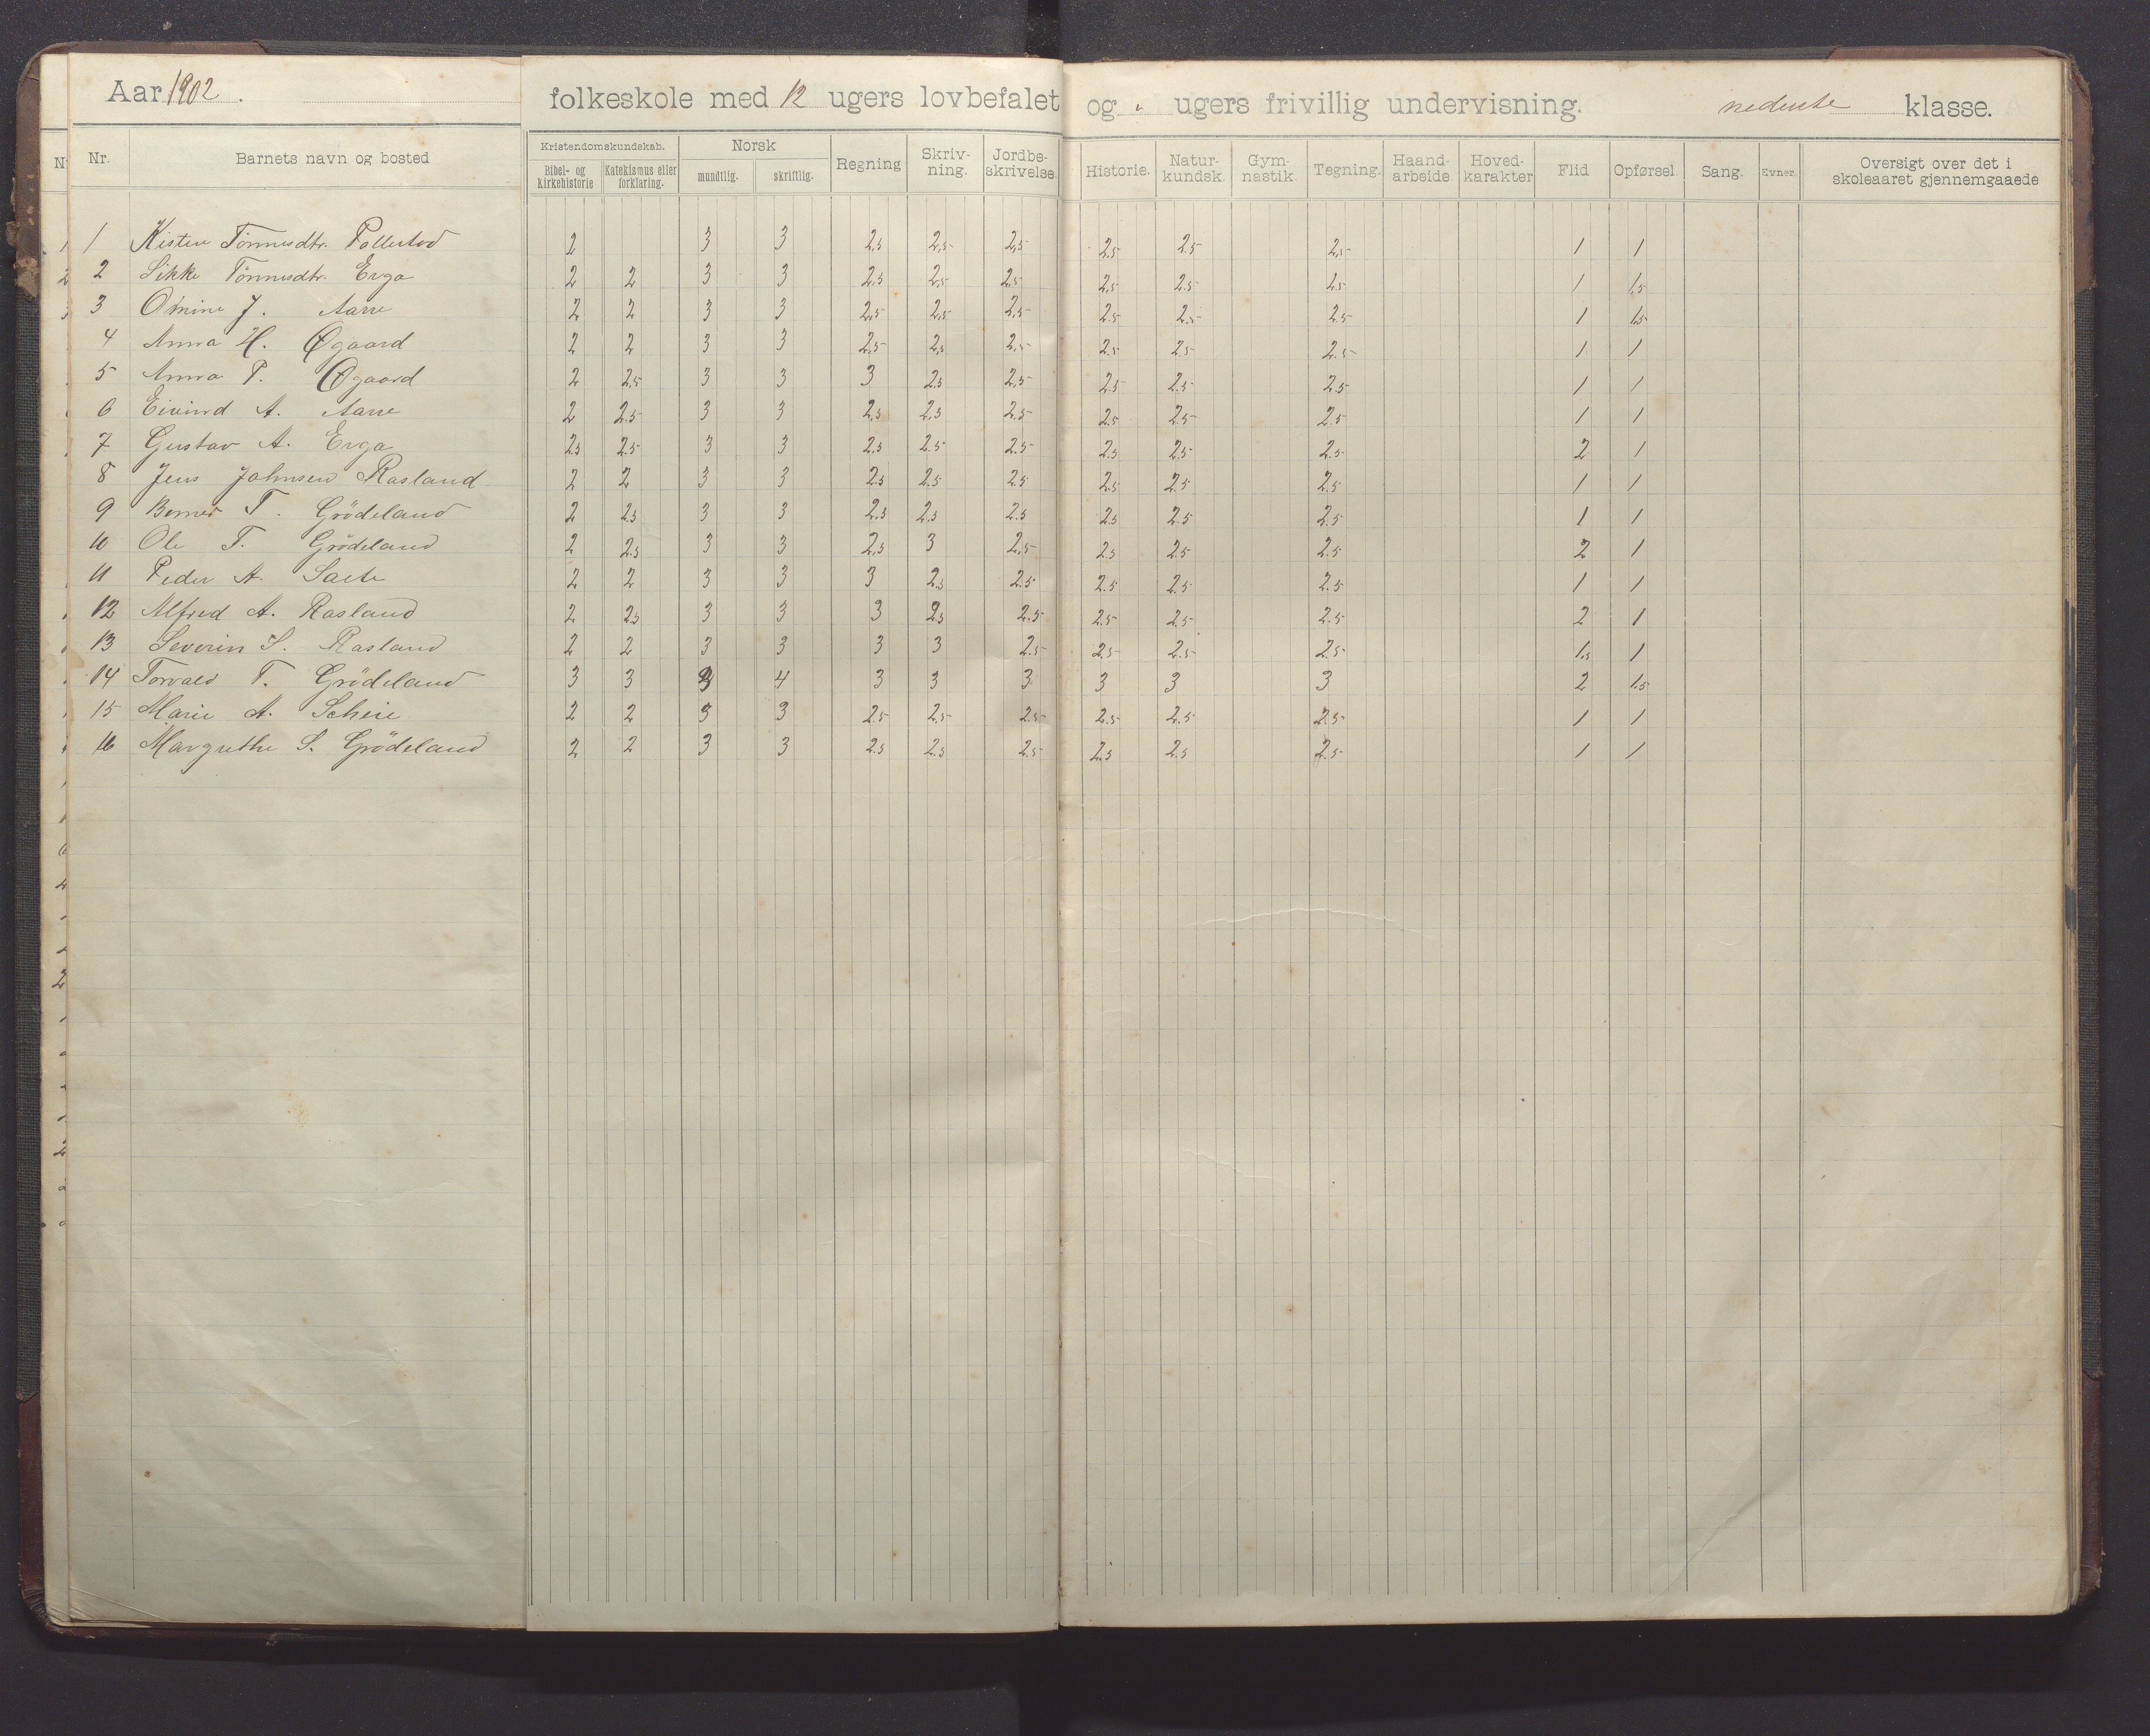 Aar 1902. folkeskole med 12 ugers lovbefalet og " ugers frivillig undervisning. nederste klasse.
Nr. Barnets navn og bosted Kristendomskundskab. Bibel- og kirkehistorie Katekismus eller forklaring. Norsk mundtlig. skriftlig. Regning Skrivning. Jordbeskrivelse. Historie. Naturkundsk. Gymnastik. Tegning. Haandarbeide Hovedkarakter Flid Opførsel Sang. Evner. Oversigt over det i skoleaaret gjennemgaaede
1 Kisten Tönnesdtr. Pollestad 2 3 3 2,5 2,5 2,5 2.5 2.5 2,5 1 1
2 Sikke Tönnesdtr. Erga 2 2 3 3 2,5 2,5 2,5 2,5 2.5 2.5 1 1,5
3 Omine J. Aarre 2 2 3 3 2,5 2,5 2,5 2.5 2.5 2.5 1 1,5
4 Anna H. Øgaard 2 2 3 3 2,5 2,5 2,5 2.5 2.5 2.5 1 1
5 Anna P. Øgaard 2 2,5 3 3 3 2.5 2,5 2.5 2.5 2.5 1 1
6 Eivind A. Aarre 2 2.5 3 3 2,5 2,5 2.5 2.5 2.5 2.5 1 1
7 Gustav A. Erga 2,5 2.5 3 3 2,5 2.5 2.5 2.5 2.5 2.5 2 1
8 Jens Johnsen Rasland 2 2 3 3 2.5 2.5 2.5 2.5 2.5 2.5 1 1
9 Berner T. Grödeland 2 2.5 3 3 2.5 2.5 2.5 2.5 2.5 2.5 1 1
10 Ole T. Grödeland 2 2.5 3 3 2,5 3 2,5 2.5 2.5 2.5 2 1
11 Peder A. Saele 2 2 3 3 3 2.5 2.5 2.5 2.5 2.5 1 1
12 Alfred A. Rasland 2 2.5 3 3 3 2.5 2.5 2.5 2.5 2.5 2 1
13 Severin S. Rasland 2 2 3 3 3 3 2.5 2.5 2.5 2.5 1,5 1
14 Torvald T. Grödeland 3 3 3 4 3 3 3 3 3 3 2 1.5
15 Marie A. Scheie 2 2 3 3 2.5 2.5 2.5 2.5 2.5 2.5 1 1
16 Margrethe S. Grödeland 2 2 3 3 2.5 2.5 2.5 2.5 2.5 2.5 1 1